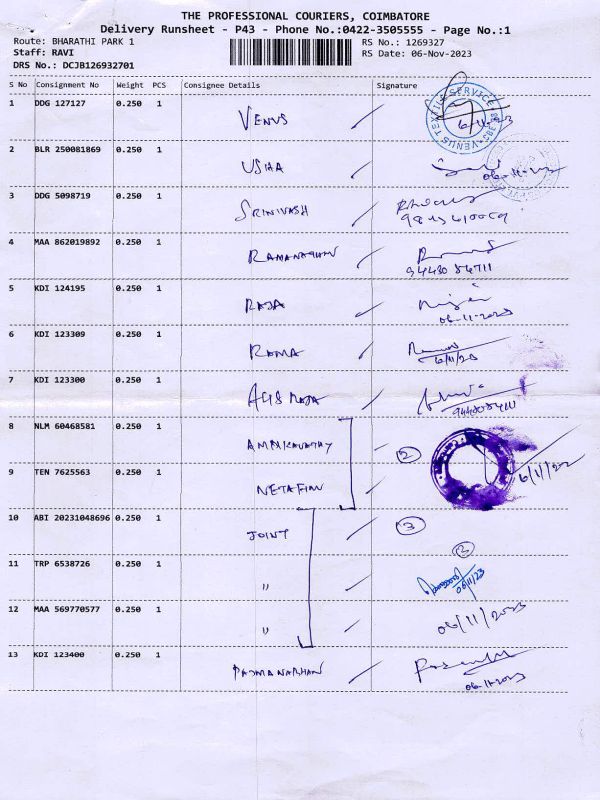 THE PROFESSIONAL COURIERS, COIMBATORE
Delivery Runsheet - P43 - Phone No.:0422-3505555 - Page No.:1
Route: BHARATHI PARK 1
RS No.: 1269327
Staff: RAVI
RS Date: 06-Nov-2023
DRS No.: DCJB126932701
S No Consignment No Weight PCS Consignee Details Signature
1 DDG 127127 0.250 1 VENUS
VENUS TEXTILE SERVICE
2 BLR 250081869 0.250 1 USHA
3 DDG 5098719 0.250 1 SRINIVASH
4 MAA 862019892 0.250 1 RAMANATHAN
94430 84711
5 KDI 124195 0.250 1 RAJA
06-11-2023
6 KDI 123309 0.250 1 RAMA
6/11/23
7 KDI 123300 0.250 1
8 NLM 60468581 0.250 1 2
9 TEN 7625563 0.250 1
10 ABI 20231048696 0.250 1 JOINT 3
11 TRP 6538726 0.250 1 "
06/11/23
12 MAA 569770577 0.250 1 " 06/11/2023
13 KDI 123400 0.250 1 PADMANABHAN
06-11-2023